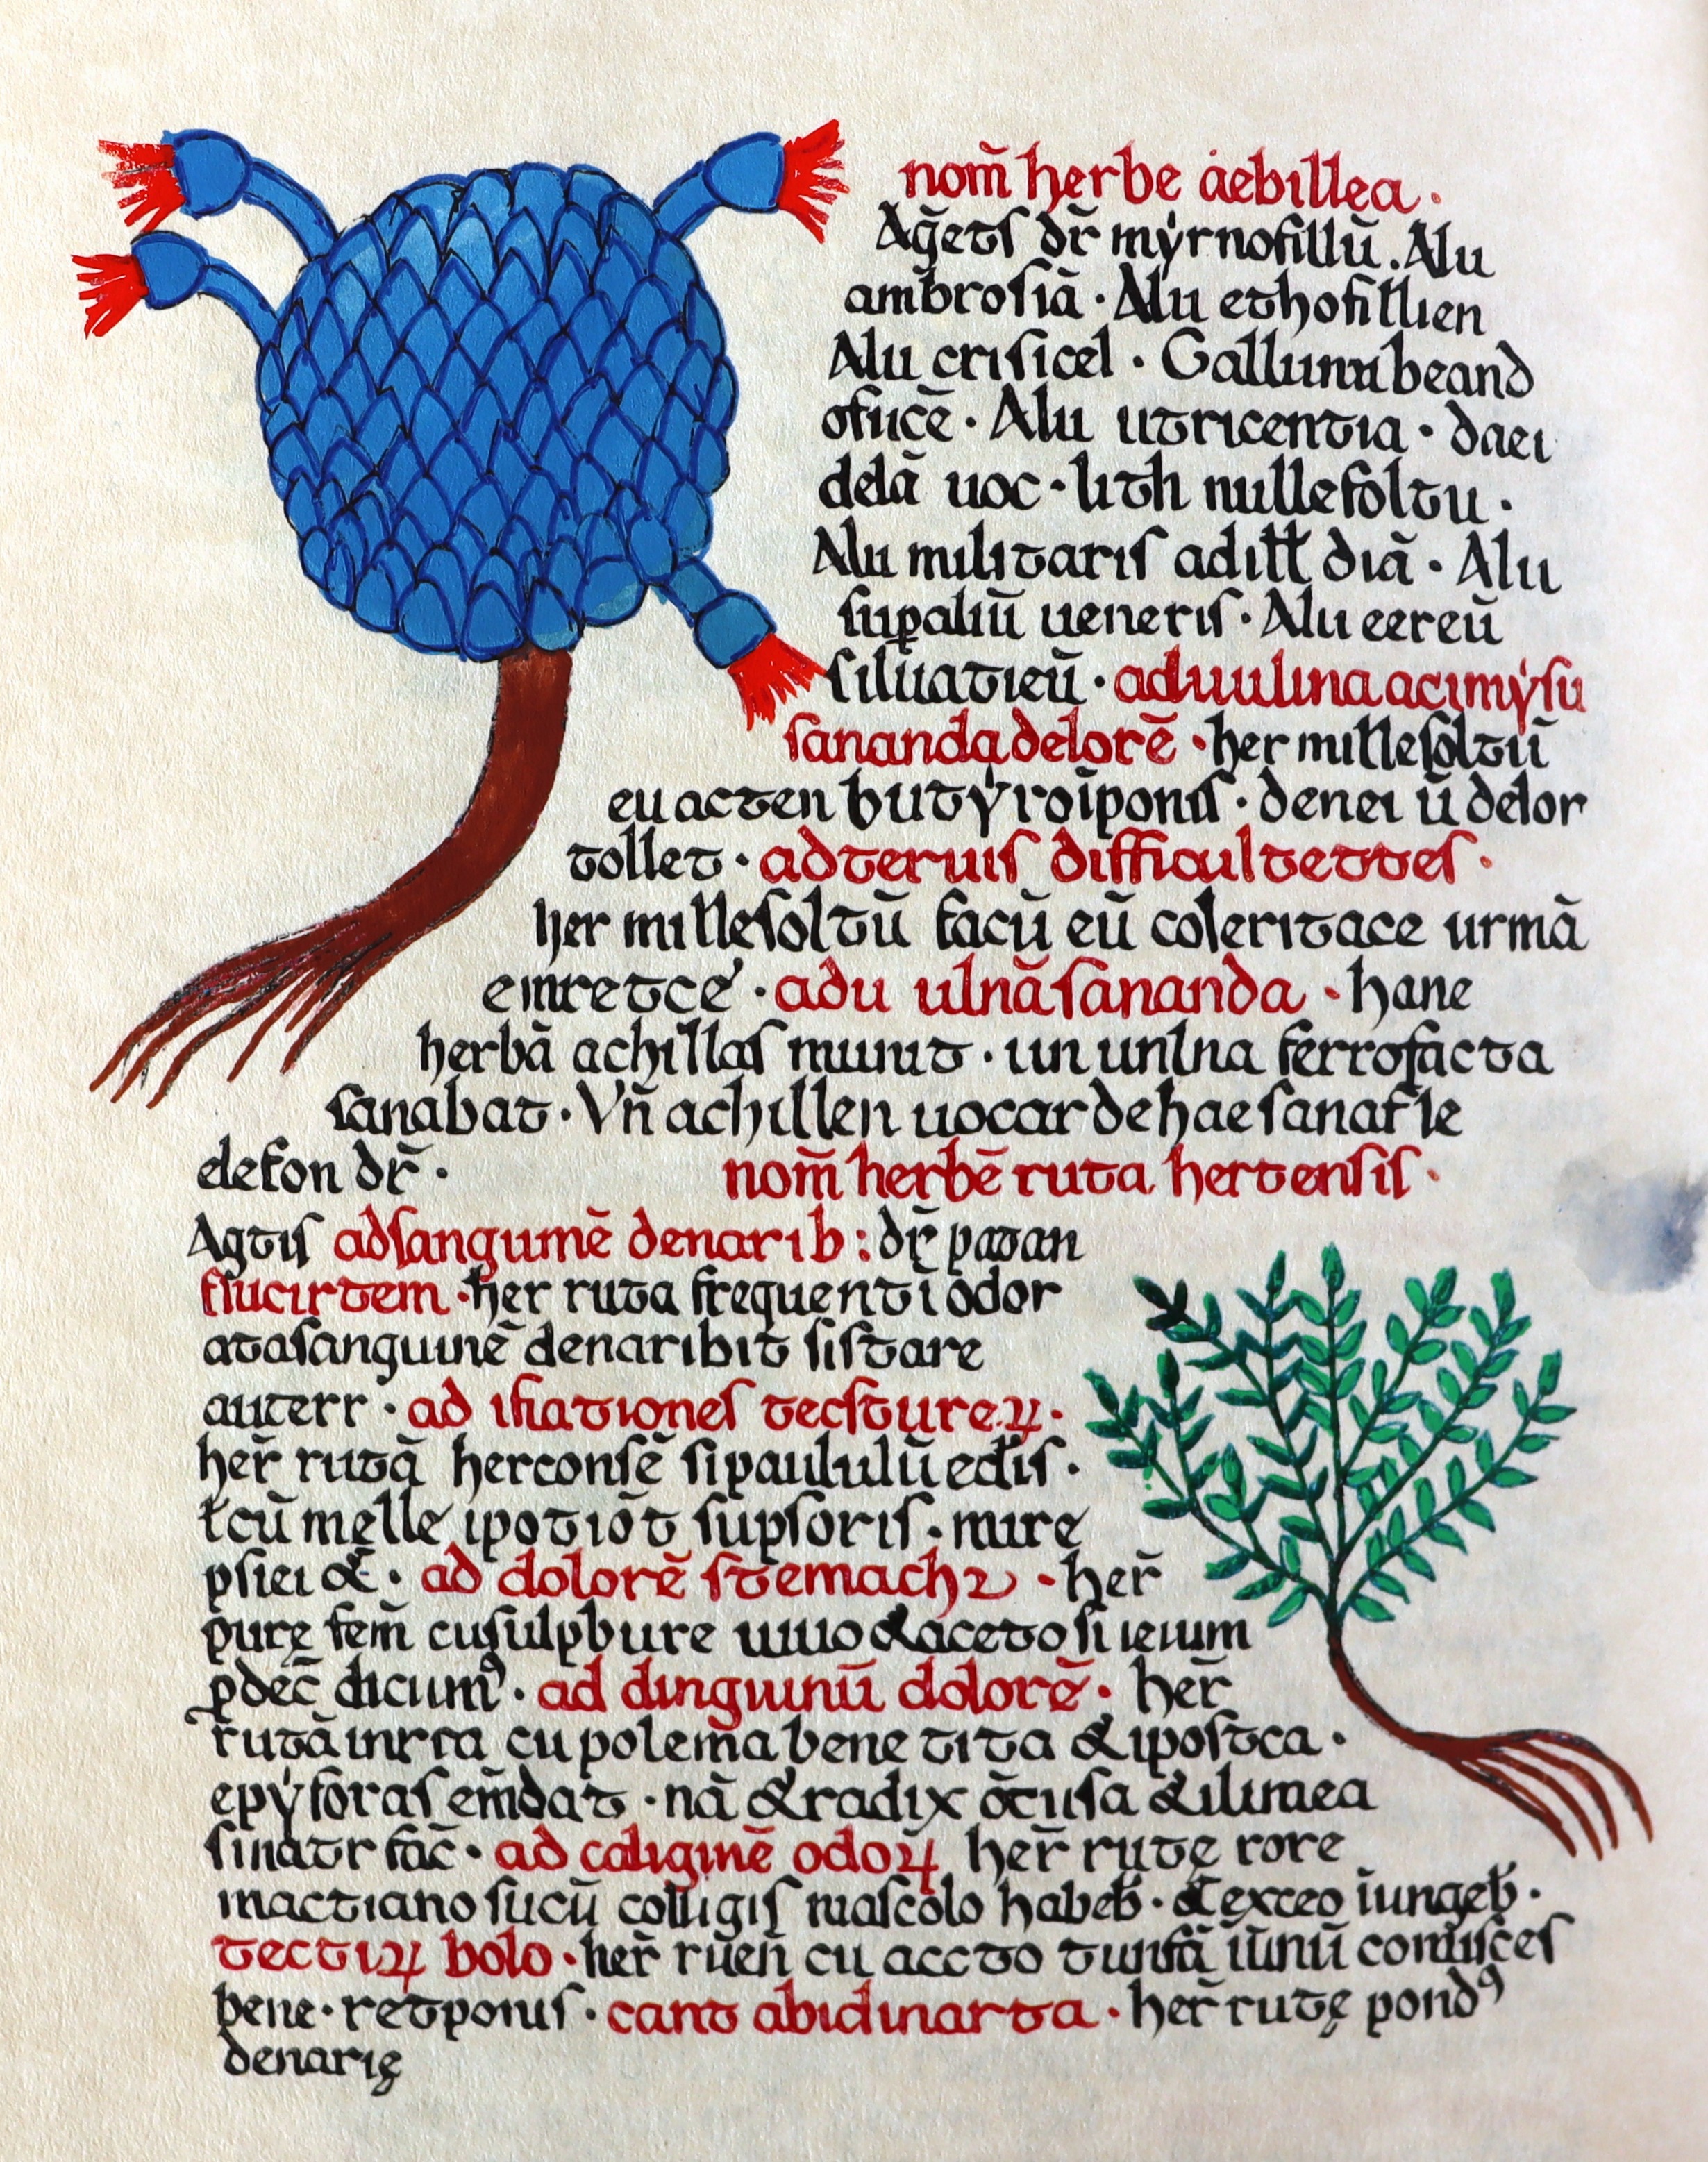 nom̄ herbe aebillea.
Ag̃ets dr̄ mẏrnofillū. Alu
ambrosiā · Alu ethofillien
Alu crisicel · Gallunu beand
ofucē · Alu utricentia · daei
delā uoc · lith nullefoltu ·
Alu militaris adill diā · Alu
supaliū ueneris · Alu eereū
siluaticū · aduulina acimẏsu
sananda delorē · her millesoltū
eu acten butẏro īponis · denei ū delor
tollet · adteruis difficultettes ·
her millesoltū facū eū coleritace urmā
einretce · adu ulnā sananda · hane
herbā achillas muuut · un unlna ferrofacta
sanabat · Vn̄ achillen uocar de hae sanat le
elefon dr̄ ·
nom̄ herbē ruta hertensis ·
Agtis adsangumē denarib : dr̄ patan
flucirtem · her ruta frequenti odor
atasanguinē denaribit sistare
aucerr · ad ifiationes tecsture ꝝ ·
her̄ rutā herconsē si paululū edis ·
t cū melle ipotiōt supsoris · mire
psiei & · ad dolorē stemachꝛ · her̄
pure fem̄ cusulpbure uiuo & aceto si ieium
pdec̄ dicum⁹ · ad dinguinū dolorē · her̄
rutā inrta cu polem̄a bene tita & ipostca ·
epẏforas em̄dat · nā & radix ōcusa & ilimea
sinatr fac̄ · ad caliginē odoꝝ her̄ rutę rore
mactiano sucū colligis mascolo habeb̄ · & exceo iungeb̄ ·
tectiꝝ bolo · her̄ rūen̄ cu accto tunsā iūnū comisces
bene · retponis · cant abidinarta · her̄ rutę pond⁹
denarię